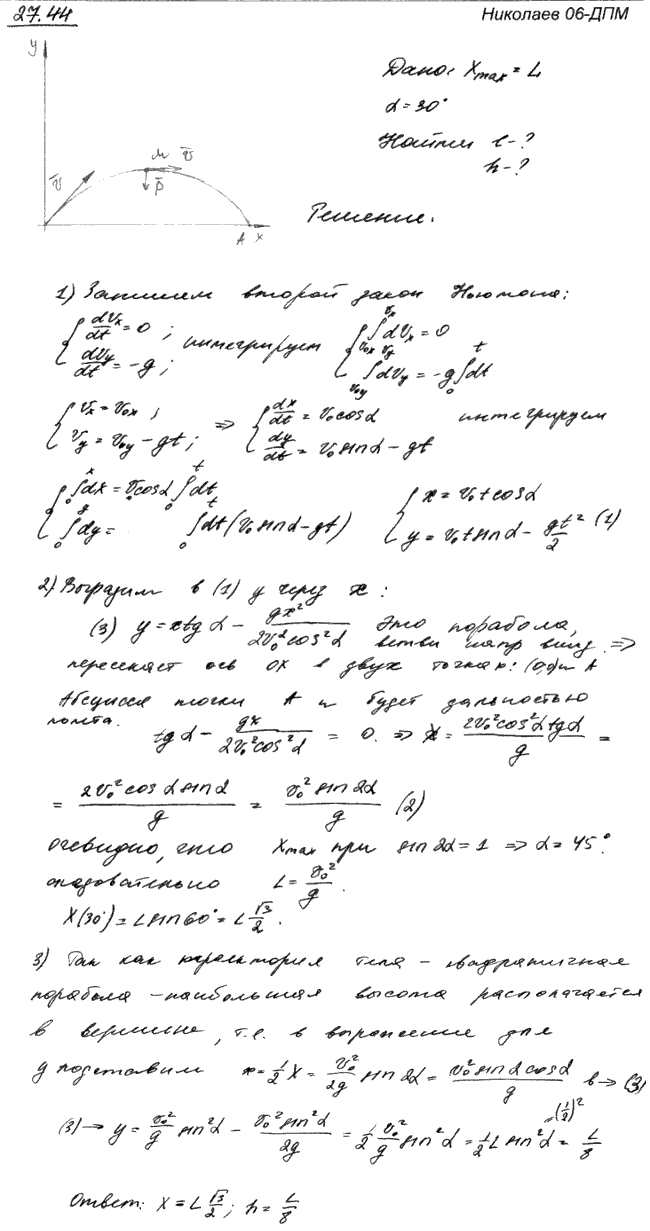 27.44
Николаев 06-ДПМ
y
v̄
M v̄
P̄
A x
Дано: Xmax = L
α = 30°
Найти l - ?
h - ?
Решение.
1) Запишем второй закон Ньютона:
{ dVx/dt = 0 ; dVy/dt = -g ; интегрируем { ∫[v0x; vx] dVx = 0 ; ∫[v0y; vy] dVy = -g ∫[0; t] dt
{ Vx = v0x ; Vy = v0y - gt ; ⇒ { dx/dt = v0 cosα ; dy/dt = v0 sinα - gt интегрируем
{ ∫[0; x] dx = v0 cosα ∫[0; t] dt ; ∫[0; y] dy = ∫[0; t] dt (v0 sinα - gt) { x = v0 t cosα ; y = v0 t sinα - gt²/2 (1)
2) Выразим в (1) y через x :
(3) y = x tg α - gx²/(2v0² cos²α) Это порабола, ветви напр вниз. ⇒
пересекает ось OX в двух точках: (0,0) и A
Абсцисса точки A и будет дальностью
полета.
tg α - gx/(2v0² cos²α) = 0. ⇒ X = 2v0² cos²α tgα / g =
= 2v0² cosα sinα / g = v0² sin2α / g (2)
очевидно, что Xmax при sin2α = 1 ⇒ α = 45°.
следовательно L = v0²/g .
X(30°) = L sin60° = L √3/2 .
3) Так как траектория тела - квадратичная
порабола - наибольшая высота располагается
в вершине, т.е. в выражение для
y подставим x = 1/2 X = v0²/2g sin2α = v0² sinα cosα / g в → (3)
(3) → y = v0²/g sin²α - v0² sin²α / 2g = 1/2 v0²/g sin²α = 1/2 L sin²α = L/8
=(1/2)²
Ответ: X = L √3/2 ; h = L/8